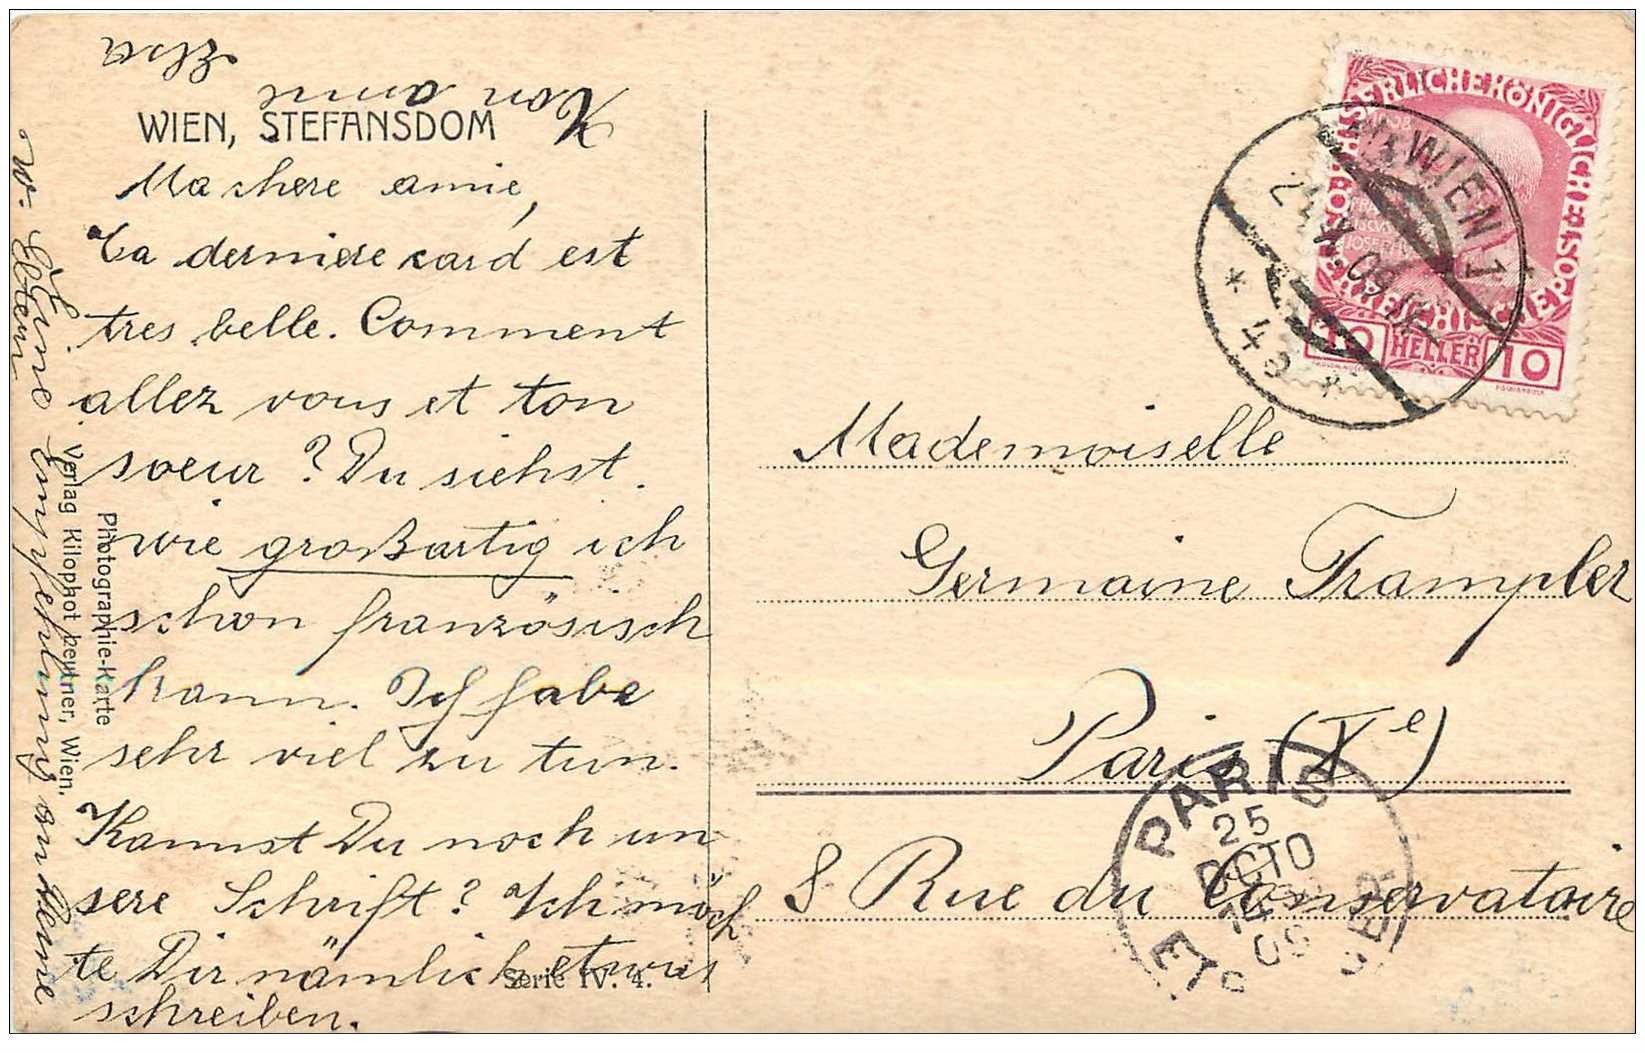 WIEN, STEFANSDOM
Ma chere amie,
Ta derniere card est
tres belle. Comment
allez vous et ton
soeur? Du siehst
wie großartig ich
schon französisch
kann. Ich habe
sehr viel zu tun.
Kannst Du noch un
sere Schrift? Ich möch
te Dir nämlich etwas
schreiben.
Von amie
Elsa
Eine Empfehlung an Deine
w. Eltern
Photographie-Karte
Verlag Kilophot beutner, Wien.
Serie IV. 4.
KAISERLICHE KÖNIGLICHE ÖSTERREICHISCHE POST
10 HELLER 10
WIEN 1
24.X.09
* 4a *
Mademoiselle
Germaine Trampler
Paris (Xe)
8 Rue du Conservatoire
PARIS
25
OCTO
09
ETRANGER